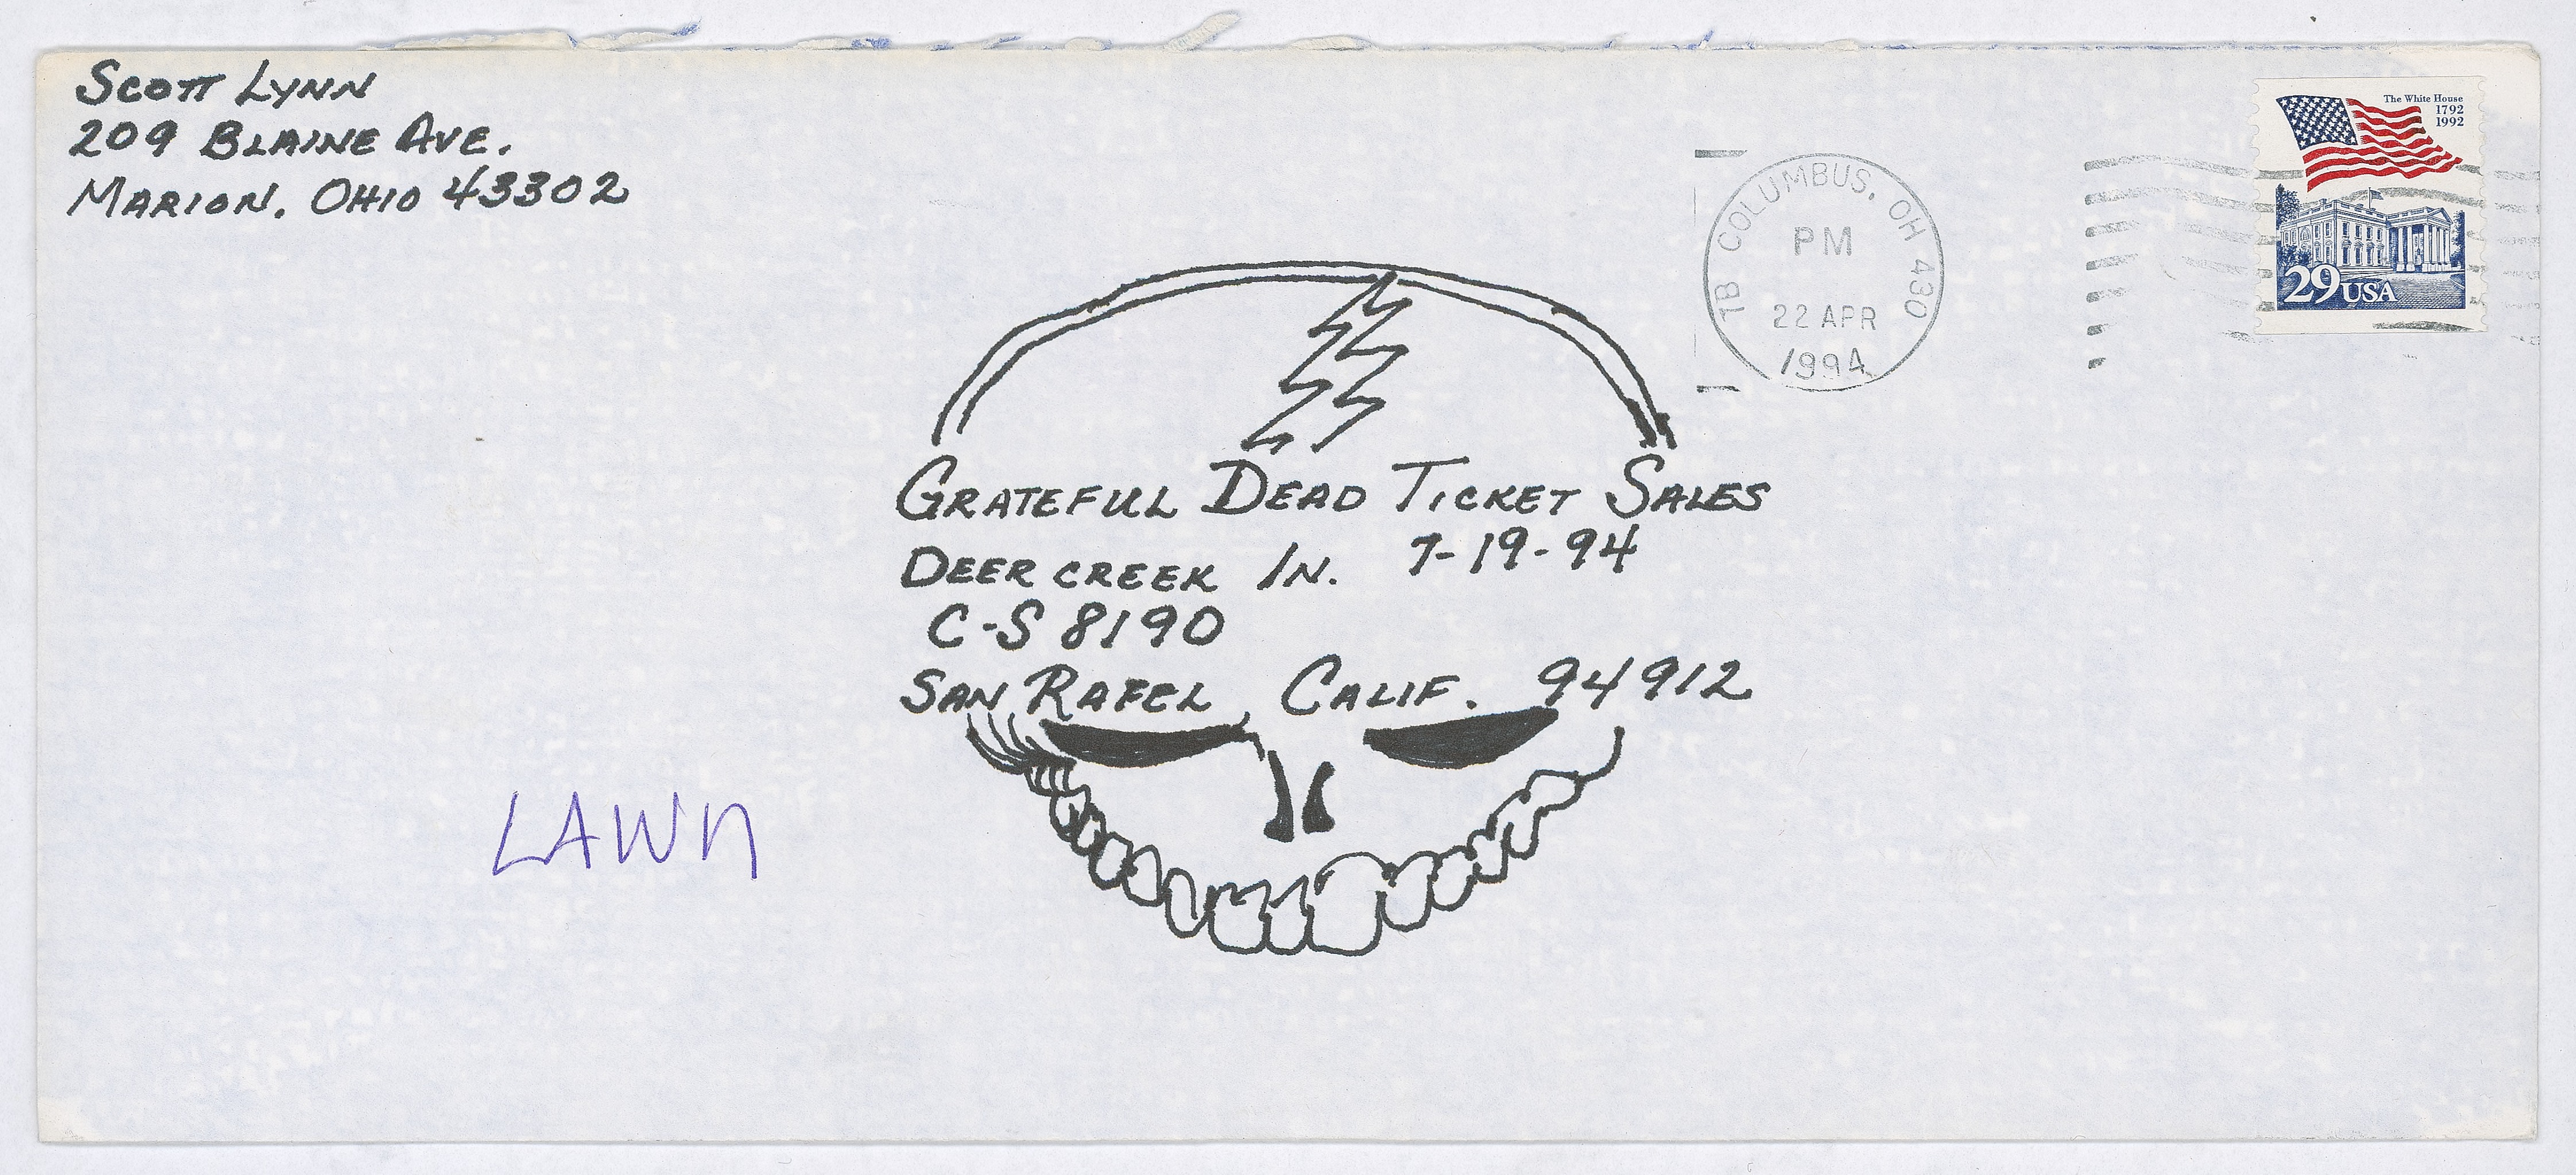 Scott Lynn
209 Blaine Ave.
Marion, Ohio 43302
The White House
1792
1992
29 USA
7B COLUMBUS, OH 430
PM
22 APR
1994
Grateful Dead Ticket Sales
Deer creek In. 7-19-94
C-S 8190
San Rafel, Calif. 94912
LAWN